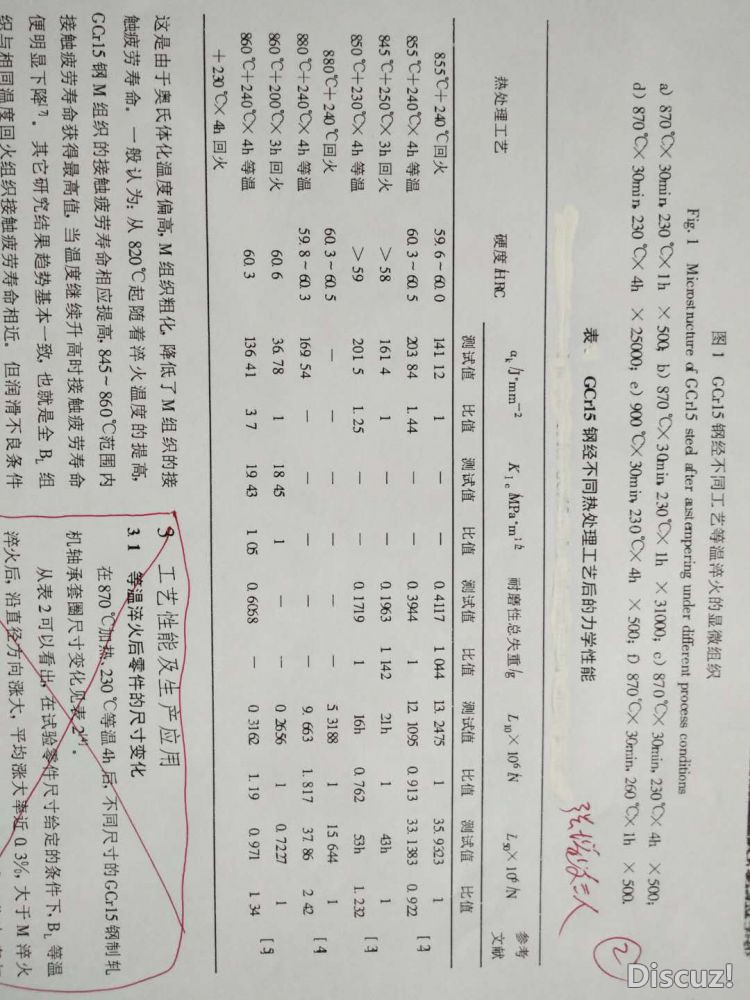 图 1 GCr15 钢经不同工艺等温淬火的显微组织
Fig. 1 Microstructure of GCr15 steel after austempering under different process conditions
a) 870℃× 30min, 230℃× 1h × 500; b) 870℃× 30min, 230℃× 1h × 31000; c) 870℃× 30min, 230℃× 4h × 500;
d) 870℃× 30min, 230℃× 4h × 25000; e) 900℃× 30min, 230℃× 4h × 500; f) 870℃× 30min, 260℃× 1h × 500.
②
表 GCr15 钢经不同热处理工艺后的力学性能
热处理工艺 硬度 HRC αk/J·mm⁻² K1c MPa·m1/2 耐磨性总失重/g L10× 10⁶/N L50× 10⁶/N 参考文献
测试值 比值 测试值 比值 测试值 比值 测试值 比值 测试值 比值
855℃+ 240℃回火 59.6~60.0 141.12 1 — — 0.4117 1.044 13.2475 1 35.9323 1
855℃+240℃× 4h 等温 60.3~60.5 203.84 1.44 — — 0.3944 1 12.1095 0.913 33.1383 0.922 [3]
845℃+250℃× 3h 回火 >58 161.4 1 — — 0.1963 1.142 21h 1 43h 1
850℃+230℃× 4h 等温 >59 201.5 1.25 — — 0.1719 1 16h 0.762 53h 1.232 [3]
880℃+ 240℃回火 60.3~60.5 — — — — — — 5.3188 1 15.644 1
880℃+240℃× 4h 等温 59.8~60.3 169.54 — — — — — 9.663 1.817 37.86 2.42 [4]
860℃+200℃× 3h 回火 60.6 36.78 1 18.45 1 — — 0.2656 1 0.7227 1
860℃+240℃× 4h 等温 60.3 136.41 3.7 19.43 1.05 0.6058 — 0.3162 1.19 0.971 1.34 [5]
+ 230℃× 4h 回火
这是由于奥氏体化温度偏高, M 组织粗化, 降低了 M 组织的接
触疲劳寿命。一般认为: 从 820℃起随着淬火温度的提高,
GCr15 钢 M 组织的接触疲劳寿命相应提高, 845~860℃范围内
接触疲劳寿命获得最高值, 当温度继续升高时接触疲劳寿命
便明显下降[7]。其它研究结果趋势基本一致, 也就是全 BL 组
织与相同温度回火组织接触疲劳寿命相近, 但润滑不良条件
3 工艺性能及生产应用
3.1 等温淬火后零件的尺寸变化
在 870℃加热, 230℃等温 4h 后, 不同尺寸的 GCr15 钢制轧
机轴承套圈尺寸变化见表 2[4]。
从表 2 可以看出, 在试验零件尺寸给定的条件下, BL 等温
淬火后, 沿直径方向涨大, 平均涨大率近 0.3%, 大于 M 淬火
Discuz!